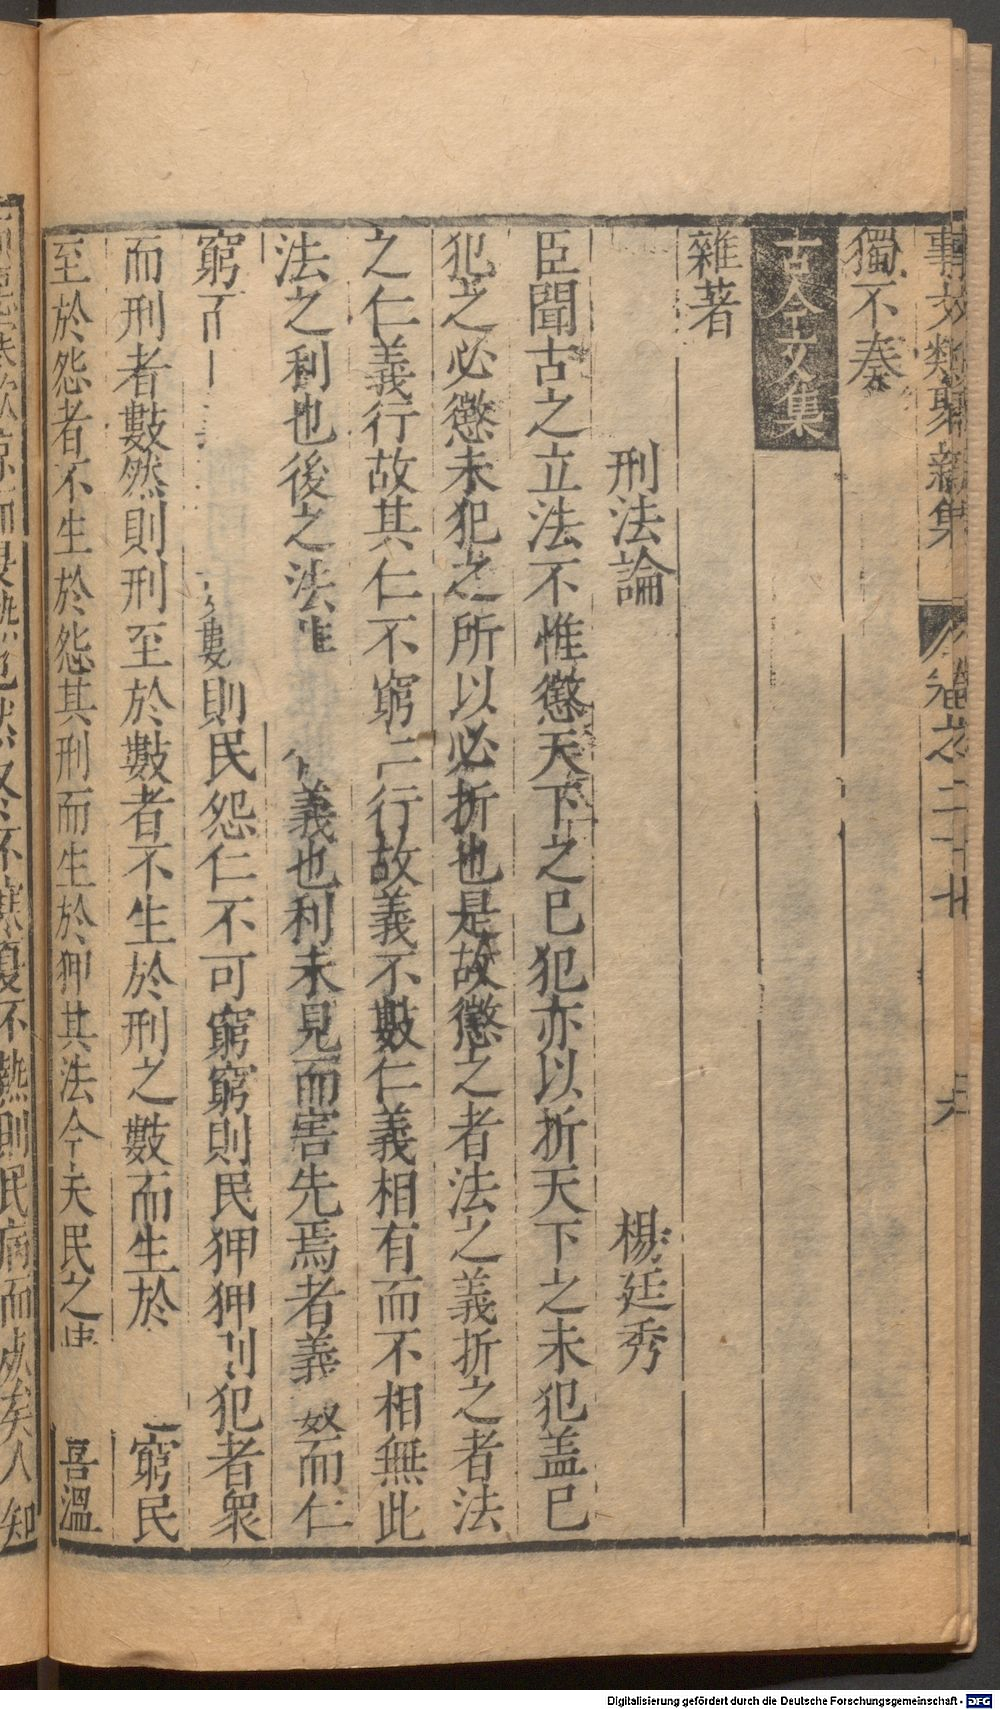 事文類聚新集 卷之二十七
獨不奏
古今文集
雜著
刑法論 楊廷秀
臣聞古之立法不惟懲天下之已犯亦以折天下之未犯盖已
犯之必懲未犯之所以必折也是故懲之者法之義折之者法
之仁義行故其仁不窮仁行故義不數仁義相有而不相無此
法之利也後之法 義也利未見而害先焉者義 而仁
窮 數則民怨仁不可窮窮則民狎狎則犯者衆
而刑者數然則刑至於數者不生於刑之數而生於 窮民
至於怨者不生於怨其刑而生於狎其法今夫民之 喜溫
則不寒夏不熱則民病而 矣人知
Digitalisierung gefördert durch die Deutsche Forschungsgemeinschaft - DFG